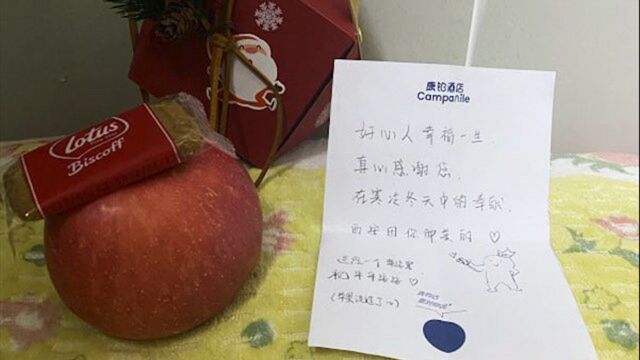 Lotus
Biscoff
康铂酒店
Campanile
好心人幸福一生.
真心感谢您.
在寒冷冬天中的奉献.
西安因你 美的 ♡
送您一个苹果
祝 平平安安 ♡
(苹果洗过了~)